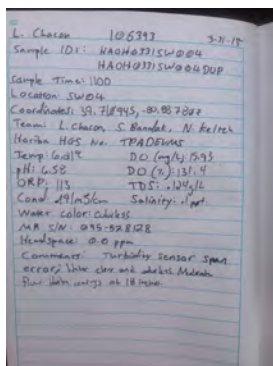 L. Chacon 106393 3-31-17
Sample IDs: HAOH0331SW004
HAOH0331SW004DUP
Sample Time: 1100
Location: SW04
Coordinates: 39.718945,
Team: L. Chacon, S. Bandak, N. Keltch
Horiba HGS No.
Temp: 6.01°C DO (mg/L) 15.93
pH: 6.58 DO (%): 131.4
ORP: 113 TDS: .124g/L
Cond .191mS/cm Salinity: .1 ppt
Water color: colorless
S/N: 095-528128
Headspace: 0.0 ppm
Comments: Turbidity sensor span
error; Water clear and